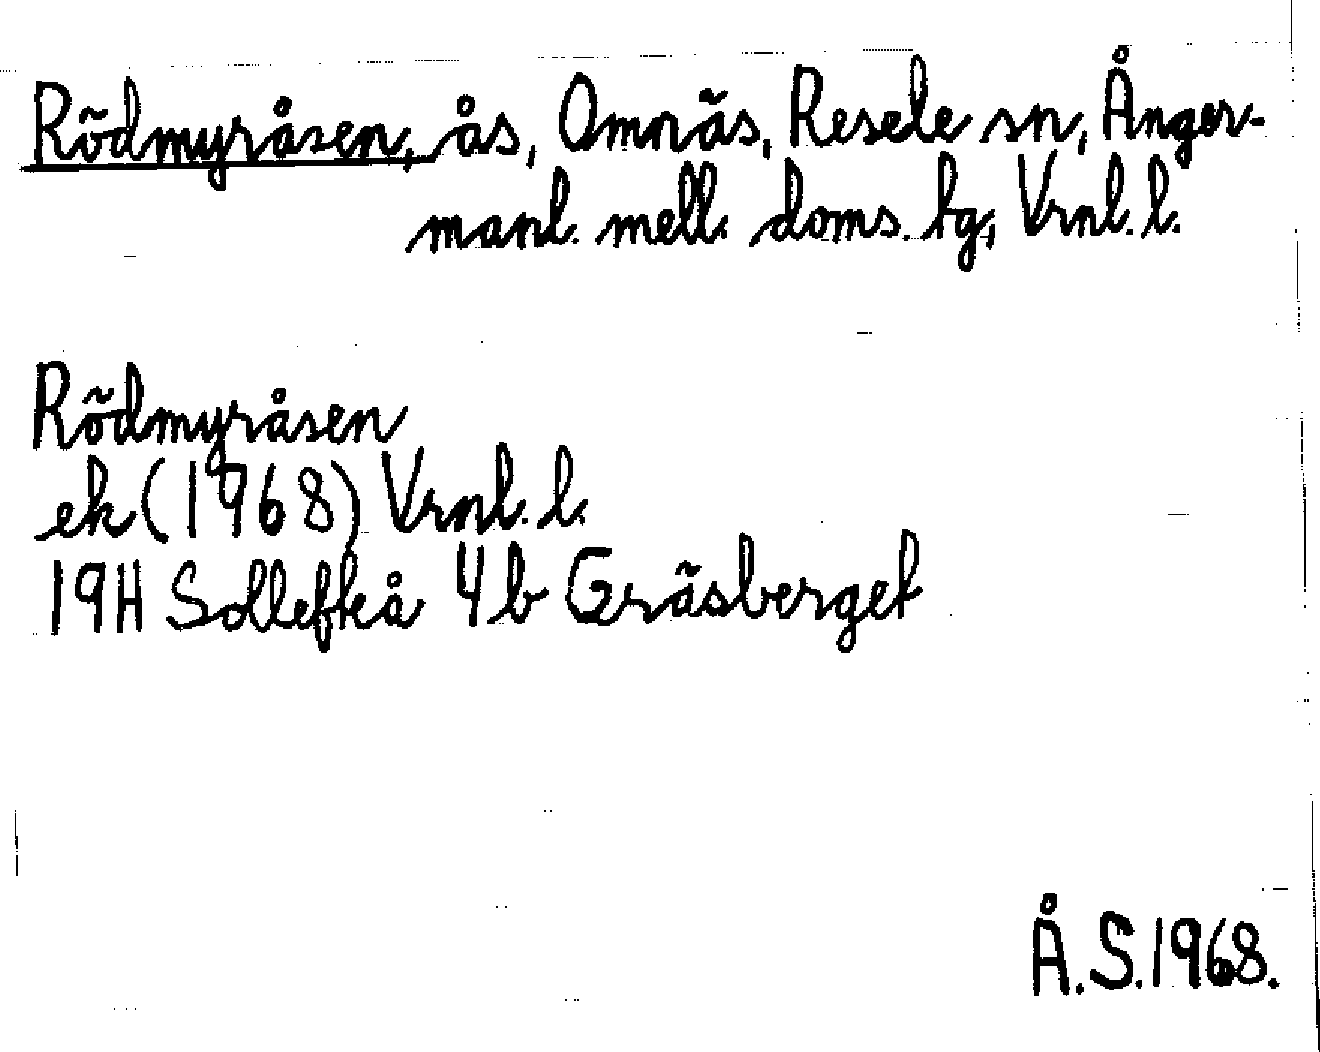 Rödmyråsen, ås, Omnäs, Resele sn, Ånger-
manl. mell. doms. tg, Vrnl. l.
Rödmyråsen
ek (1968) Vrnl. l.
19H Sollefteå 4b Gräsberget
Å.S.1968.